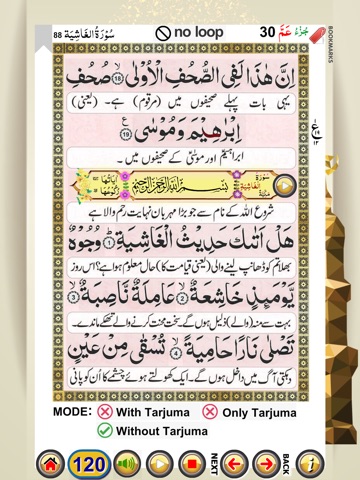 88 سُوْرَةُ الْغَاشِيَة no loop 30 جُزْءُ عَمَّ
BOOKMARKS
اِنَّ هٰذَا لَفِى الصُّحُفِ الْاُوْلٰىۙ ﴿18﴾ صُحُفِ
یہی بات پہلے صحیفوں میں (مرقوم) ہے۔ (یعنی)
اِبْرٰهِيْمَ وَمُوْسٰى ﴿19﴾
ابراہیم اور موسیٰ کے صحیفوں میں۔
سُوْرَةُ الْغَاشِيَةِ بِسْمِ اللّٰهِ الرَّحْمٰنِ الرَّحِيْمِ
شروع اللہ کے نام سے جو بڑا مہربان نہایت رحم والا ہے
هَلْ اَتٰىكَ حَدِيْثُ الْغَاشِيَةِؕ ﴿1﴾ وُجُوْهٌ
بھلا تم کو ڈھانپ لینے والی (یعنی قیامت کا) حال معلوم ہوا ہے؟ اس روز
يَّوْمَٮِٕذٍ خَاشِعَةٌۙ ﴿2﴾ عَامِلَةٌ نَّاصِبَةٌۙ ﴿3﴾
بہت سے منہ (والے) ذلیل ہوں گے۔ سخت محنت کرنے والے تھکے ماندے۔
تَصْلٰى نَارًا حَامِيَةًۙ ﴿4﴾ تُسْقٰى مِنْ عَيْنٍ
دہکتی آگ میں داخل ہوں گے۔ ایک کھولتے ہوئے چشمے کا ان کو پانی
MODE: With Tarjuma Only Tarjuma
Without Tarjuma
120 NEXT BACK i